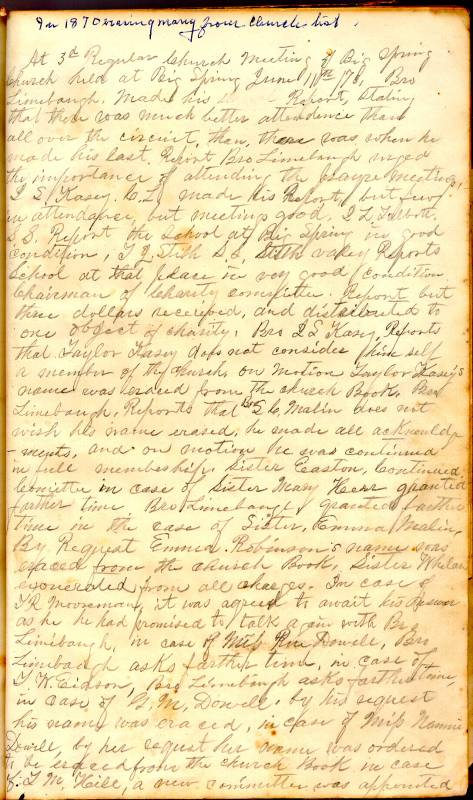 In 1870 erasing many from church list.
At 3rd Regular Church Meeting of Big Spring
Church held at Big Spring June 11th/70, Bro
Limebaugh. Made his Report, Stating
that there was much better attendence than
all over the circuit, than, there was when he
made his last Report Bro Limebaugh urged
the importance of attending the prayer Meetings,
S. Kasey. C. L. made his Report, but few
in attendance, but meetings good.
S. S. Report the School at Big Spring in good
condition, T. J. Stith S. S. Stith valley Reports
School at that place in very good condition
Chairman of Charity committee. Report but
three dollars received, and distributed to
one object of charity. Bro Q S Kasey, Reports
that Taylor Kasey does not consider him self
a member of the Church, on motion Taylor Kasey's
name was eraced from the church Book. Bro
Limebaugh. Reports that Bro S. C. Malin does not
wish his name erased, he made all acknowledg
-ments, and on motion he was continued
in full membership. Sister Easton, Continued
Committe in case of Sister Mary Herr granted
farther time, Bro Limebaugh, granted farther
time in the case of Sister, Emma Malin,
By Request Emma Robinson's name was
eraced from the church Book, Sister Whelan
exonerated from all charges. In case of
T R Mooreman, it was agreed to await his Answer
as he he had promised to talk again with Br
Limebaugh, in case of Miss Rue Dowell, Bro
Limebaugh asks farther time, in case of
T. W. Eidson, Bro Limebaugh asks farther time,
in case of N. M. Dowell. by his request
his name was eraced, in case of Miss Nannie
Dowell, by her request her name was ordered
to be eraced from the church Book in case
of J. M. Hill, a new committee was appointed